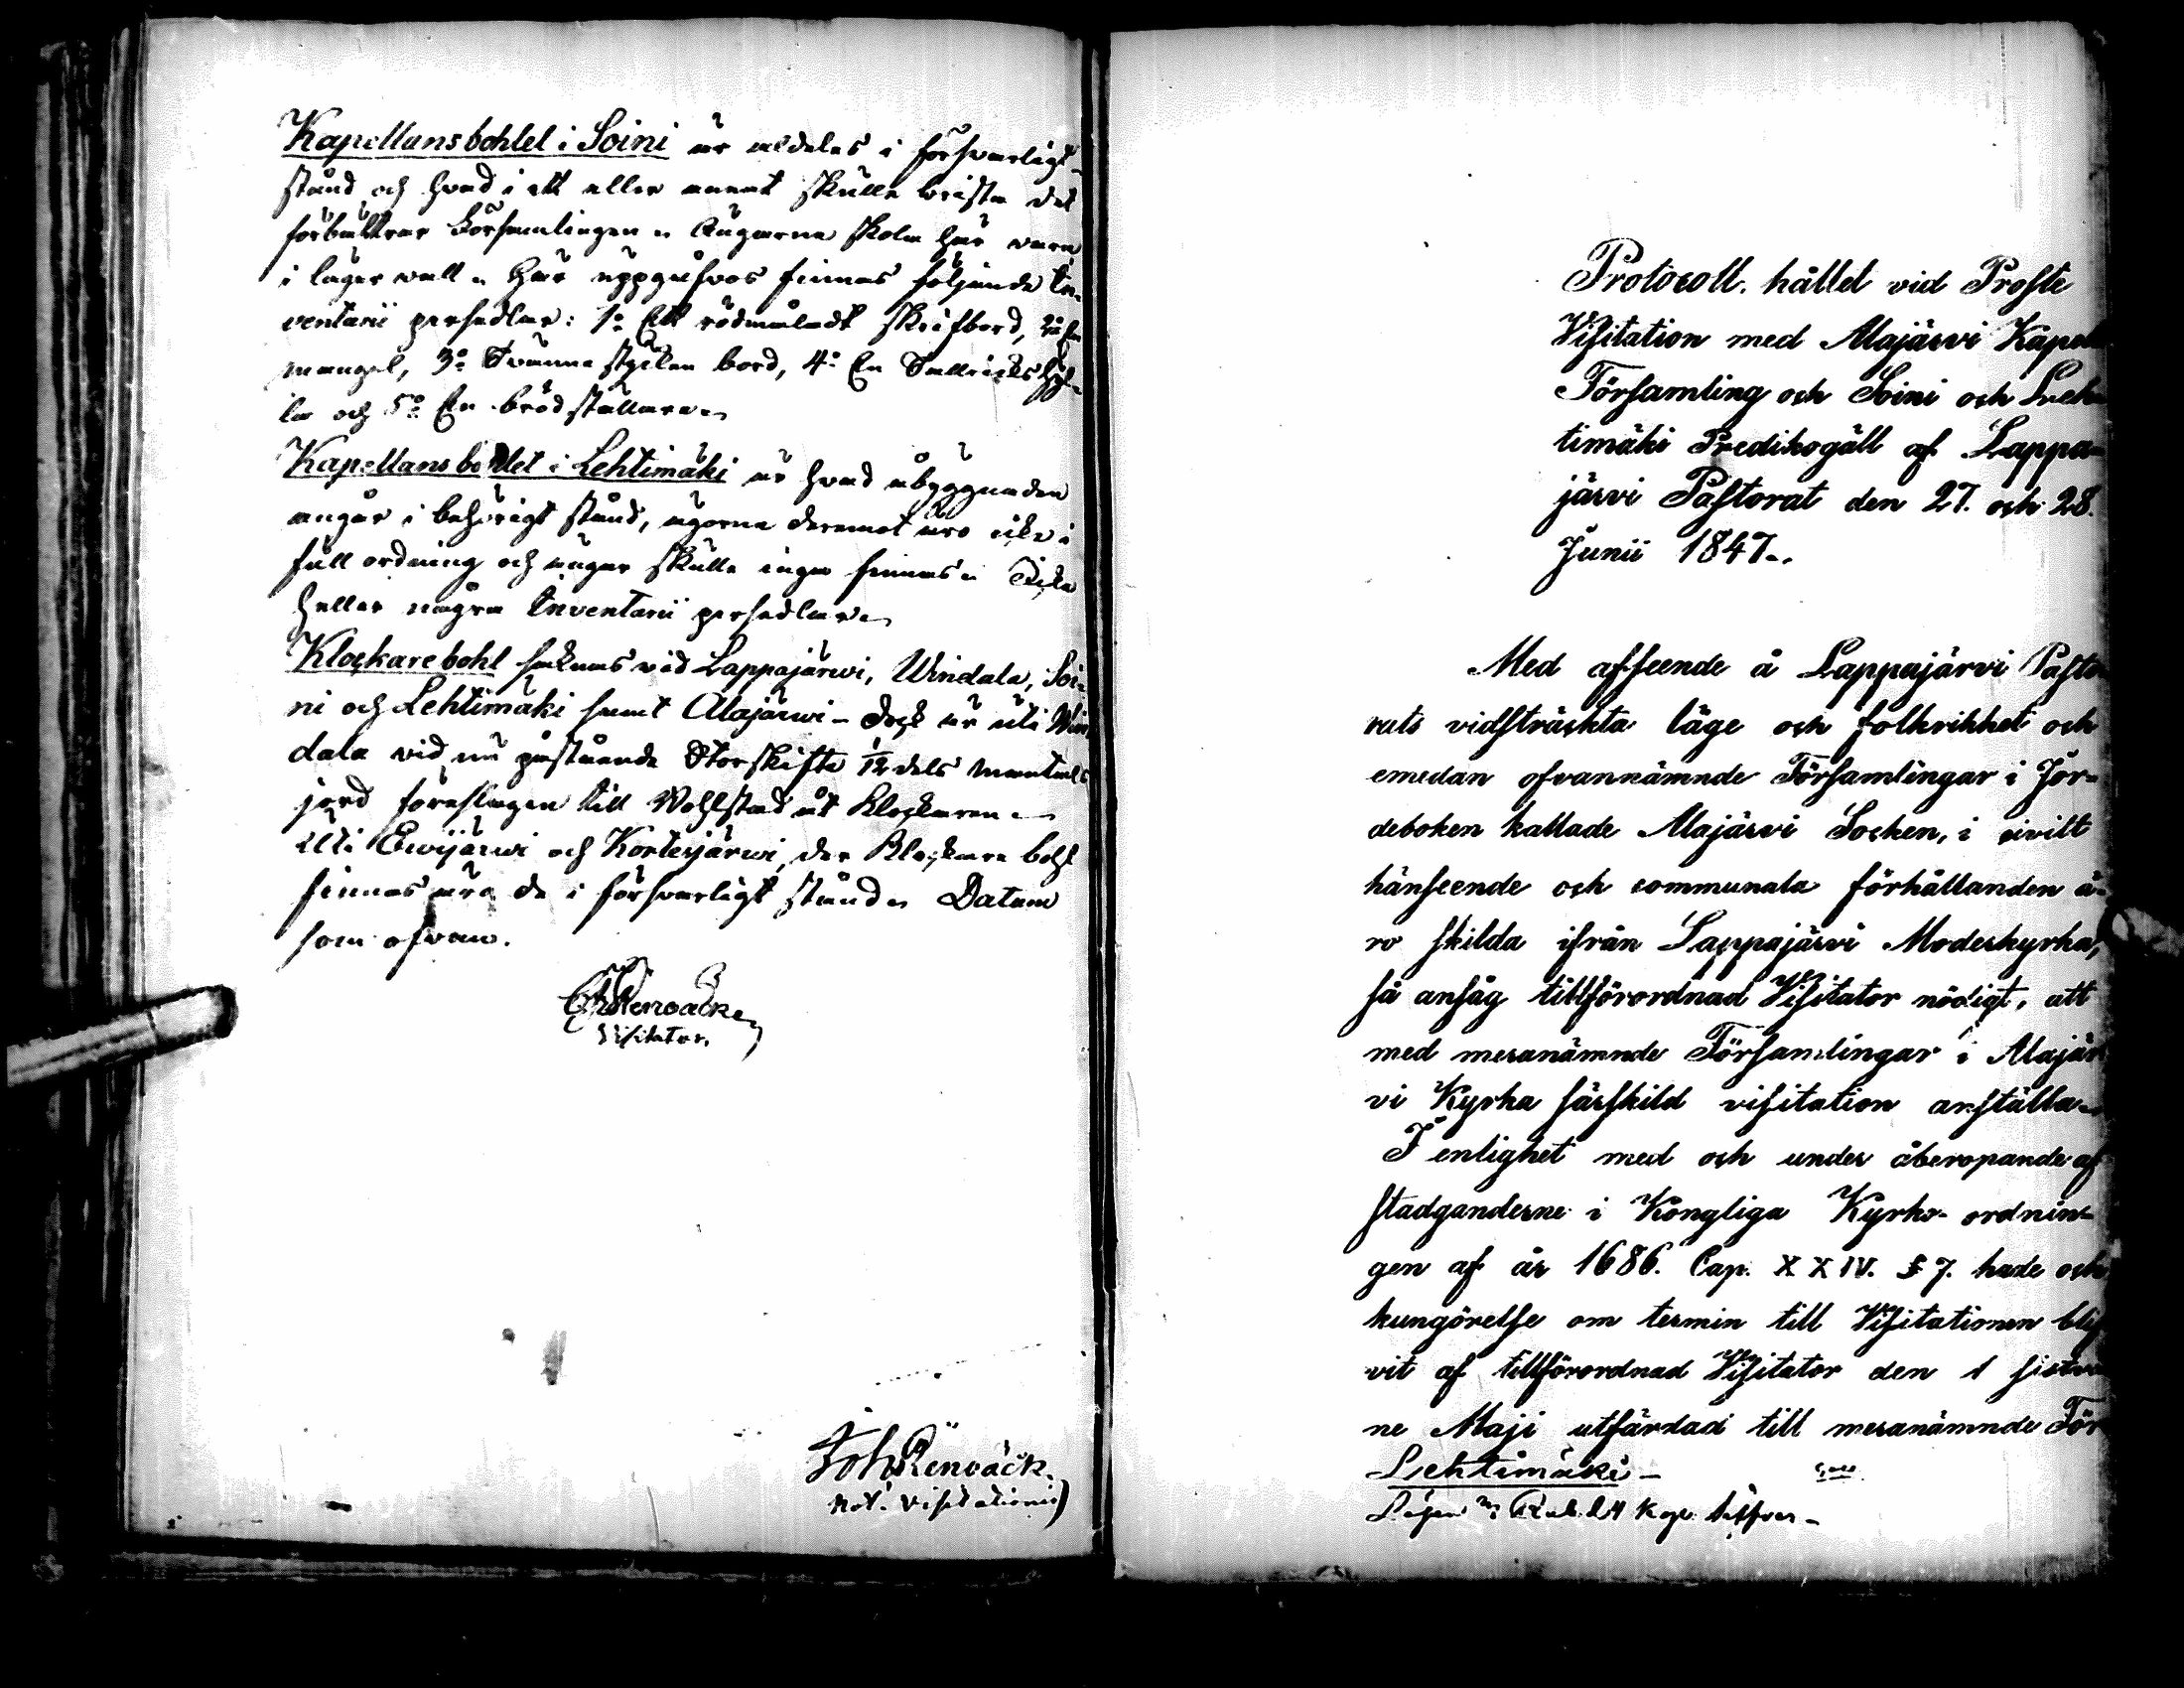 Kapellansbohlet i Soini är aldeles i försvarligt
stånd och hvad i ett eller annat skulle brista det
förbättrar Församlingen. Ängarna skola här vara
i läger vall. Här uppgifvos finnas följande In-
ventarii persedlar: 1o Ett rödmåladt skrifbord, 2o En
mangel, 3o Tvänne stycken bord, 4o En Tallricks hyl-
la och 5o En brödställare.
Kapellansbohlet i Lehtimäki är hvad åbyggnaden
angår i behörigt stånd, ägorna deremot äro icke i
full ordning och ängar skulle inga finnas. Icke
heller några Inventarii persedlar.
Klockarebohl saknas vid Lappajärwi, Windala, Soi-
ni och Lehtimäki samt Alajärwi - dock är uti Win
dala vid nu påstående Storskifte 1/12 dels mantals
jord föreslagen till Bohlstad åt Klockaren.
Uti Ewijärwi och Kortesjärwi, der Klockare bohl
finnas äro de i försvarligt stånd. Datum
som ofvan.
Renvack
Visitator.
Joh Renväck.
Not. Visitationis
Protocoll. hållet vid Proste
Visitation med Alajärvi Kapell
Församling och Soini och Leh
timäki Predikogäll af Lappa-
järvi Pastorat den 27. och 28.
Junii 1847.
Med afseende å Lappajärvi Pasto
rats vidsträckta läge och folkrikhet och
emedan ofvannämnde Församlingar i Jor-
deboken kallade Alajärvi Socken, i civilt
hänseende och communala förhållanden ä-
ro skilda ifrån Lappajärvi Moderkyrka,
så ansåg tillförordnad Visitator nödigt, att
med meranämnde Församlingar i Alajär
vi Kyrka särskild visitation anställa.
I enlighet med och under åberopande af
stadganderne i Kongliga Kyrko-ordnin-
gen af år 1686. Cap. XXIV. § 7. hade och
kungörelse om termin till Visitationen blif
vit af tillförordnad Visitator den 1 sistvi
ne Maji utfärdad till meranämnde För
Lehtimäki -
Rub. 24 Kop.